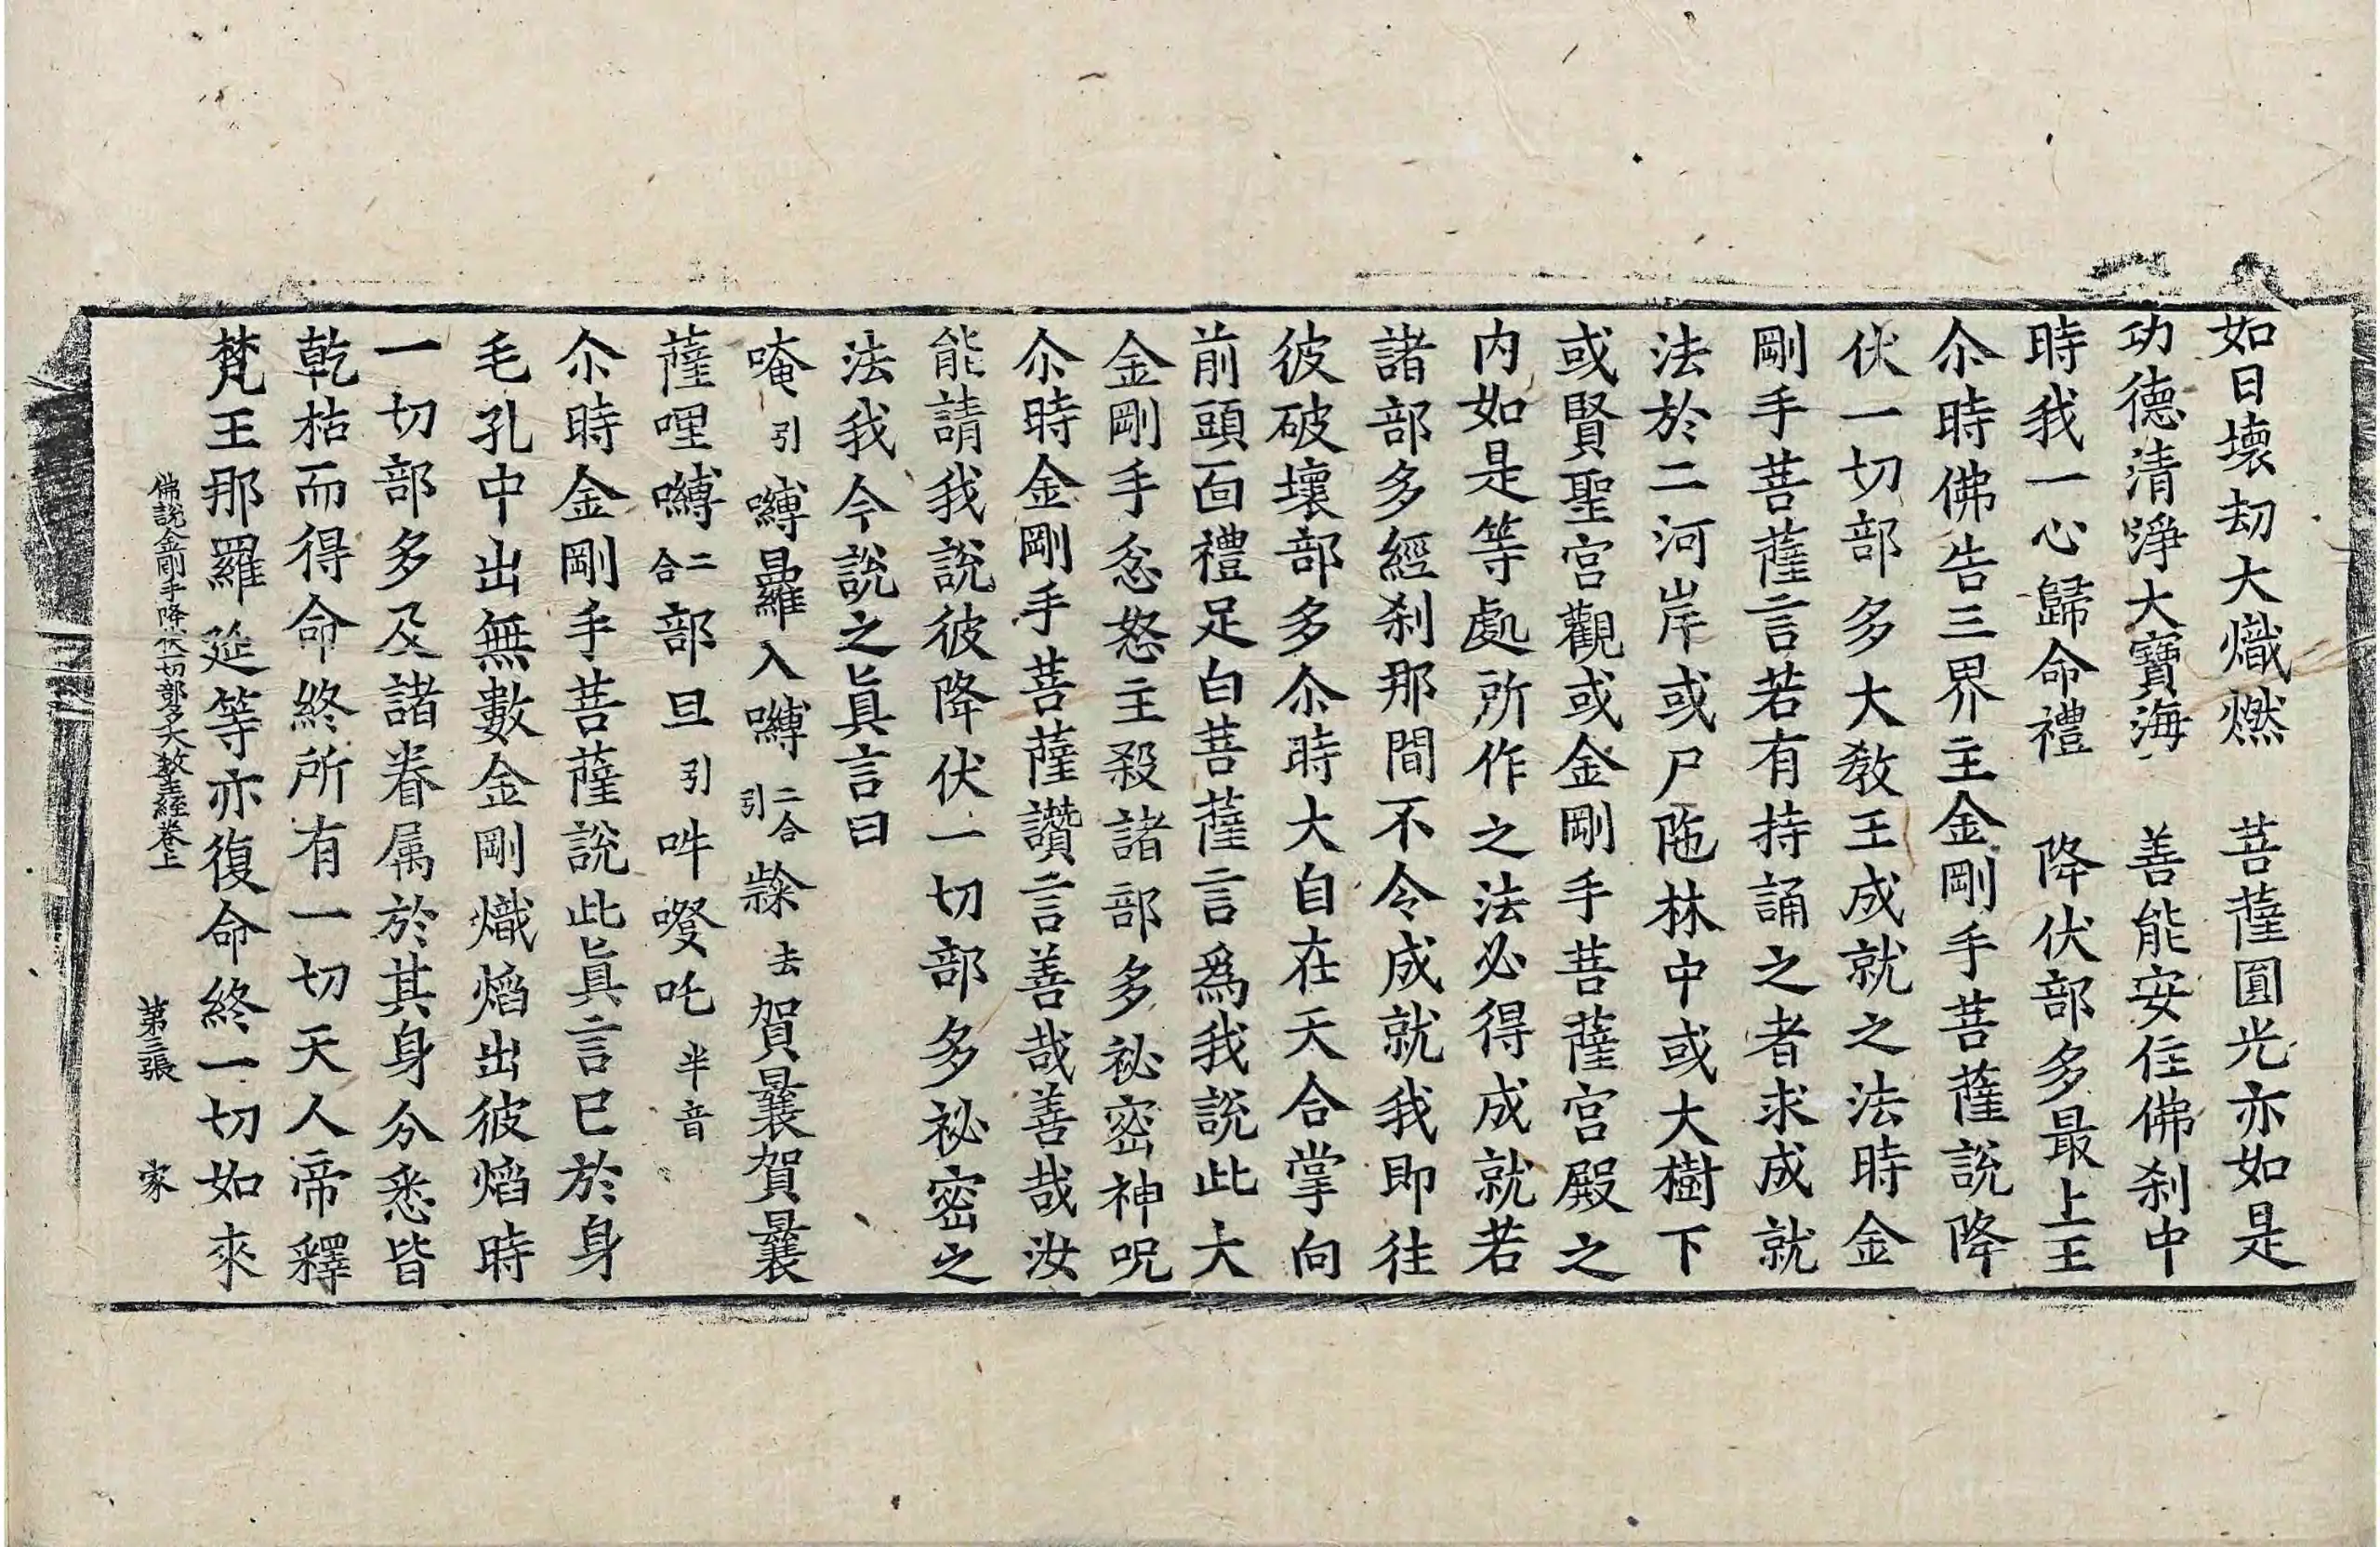 如日壞劫大熾燃　菩薩圓光亦如是
功德清淨大寶海　善能安住佛剎中
時我一心歸命禮　降伏部多最上王
尒時佛告三界主金剛手菩薩說降
伏一切部多大教王成就之法時金
剛手菩薩言若有持誦之者求成就
法於二河岸或尸陁林中或大樹下
或賢聖宮觀或金剛手菩薩宮殿之
內如是等處所作之法必得成就若
諸部多經剎那間不令成就我即往
彼破壞部多尒時大自在天合掌向
前頭面禮足白菩薩言爲我說此大
金剛手忿怒主殺諸部多祕密神呪
尒時金剛手菩薩讚言善哉善哉汝
能請我說彼降伏一切部多祕密之
法我今說之眞言曰
唵引嚩曩羅入嚩二合引𪘨去賀曩賀曩
薩哩嚩二合部旦引吽㗶吒半音
尒時金剛手菩薩說此眞言已於身
毛孔中出無數金剛熾焰出彼焰時
一切部多及諸眷属於其身分悉皆
乾枯而得命終所有一切天人帝釋
梵王那羅延等亦復命終一切如來
佛說金剛手降伏一切部多大教王經卷上　第三張　家